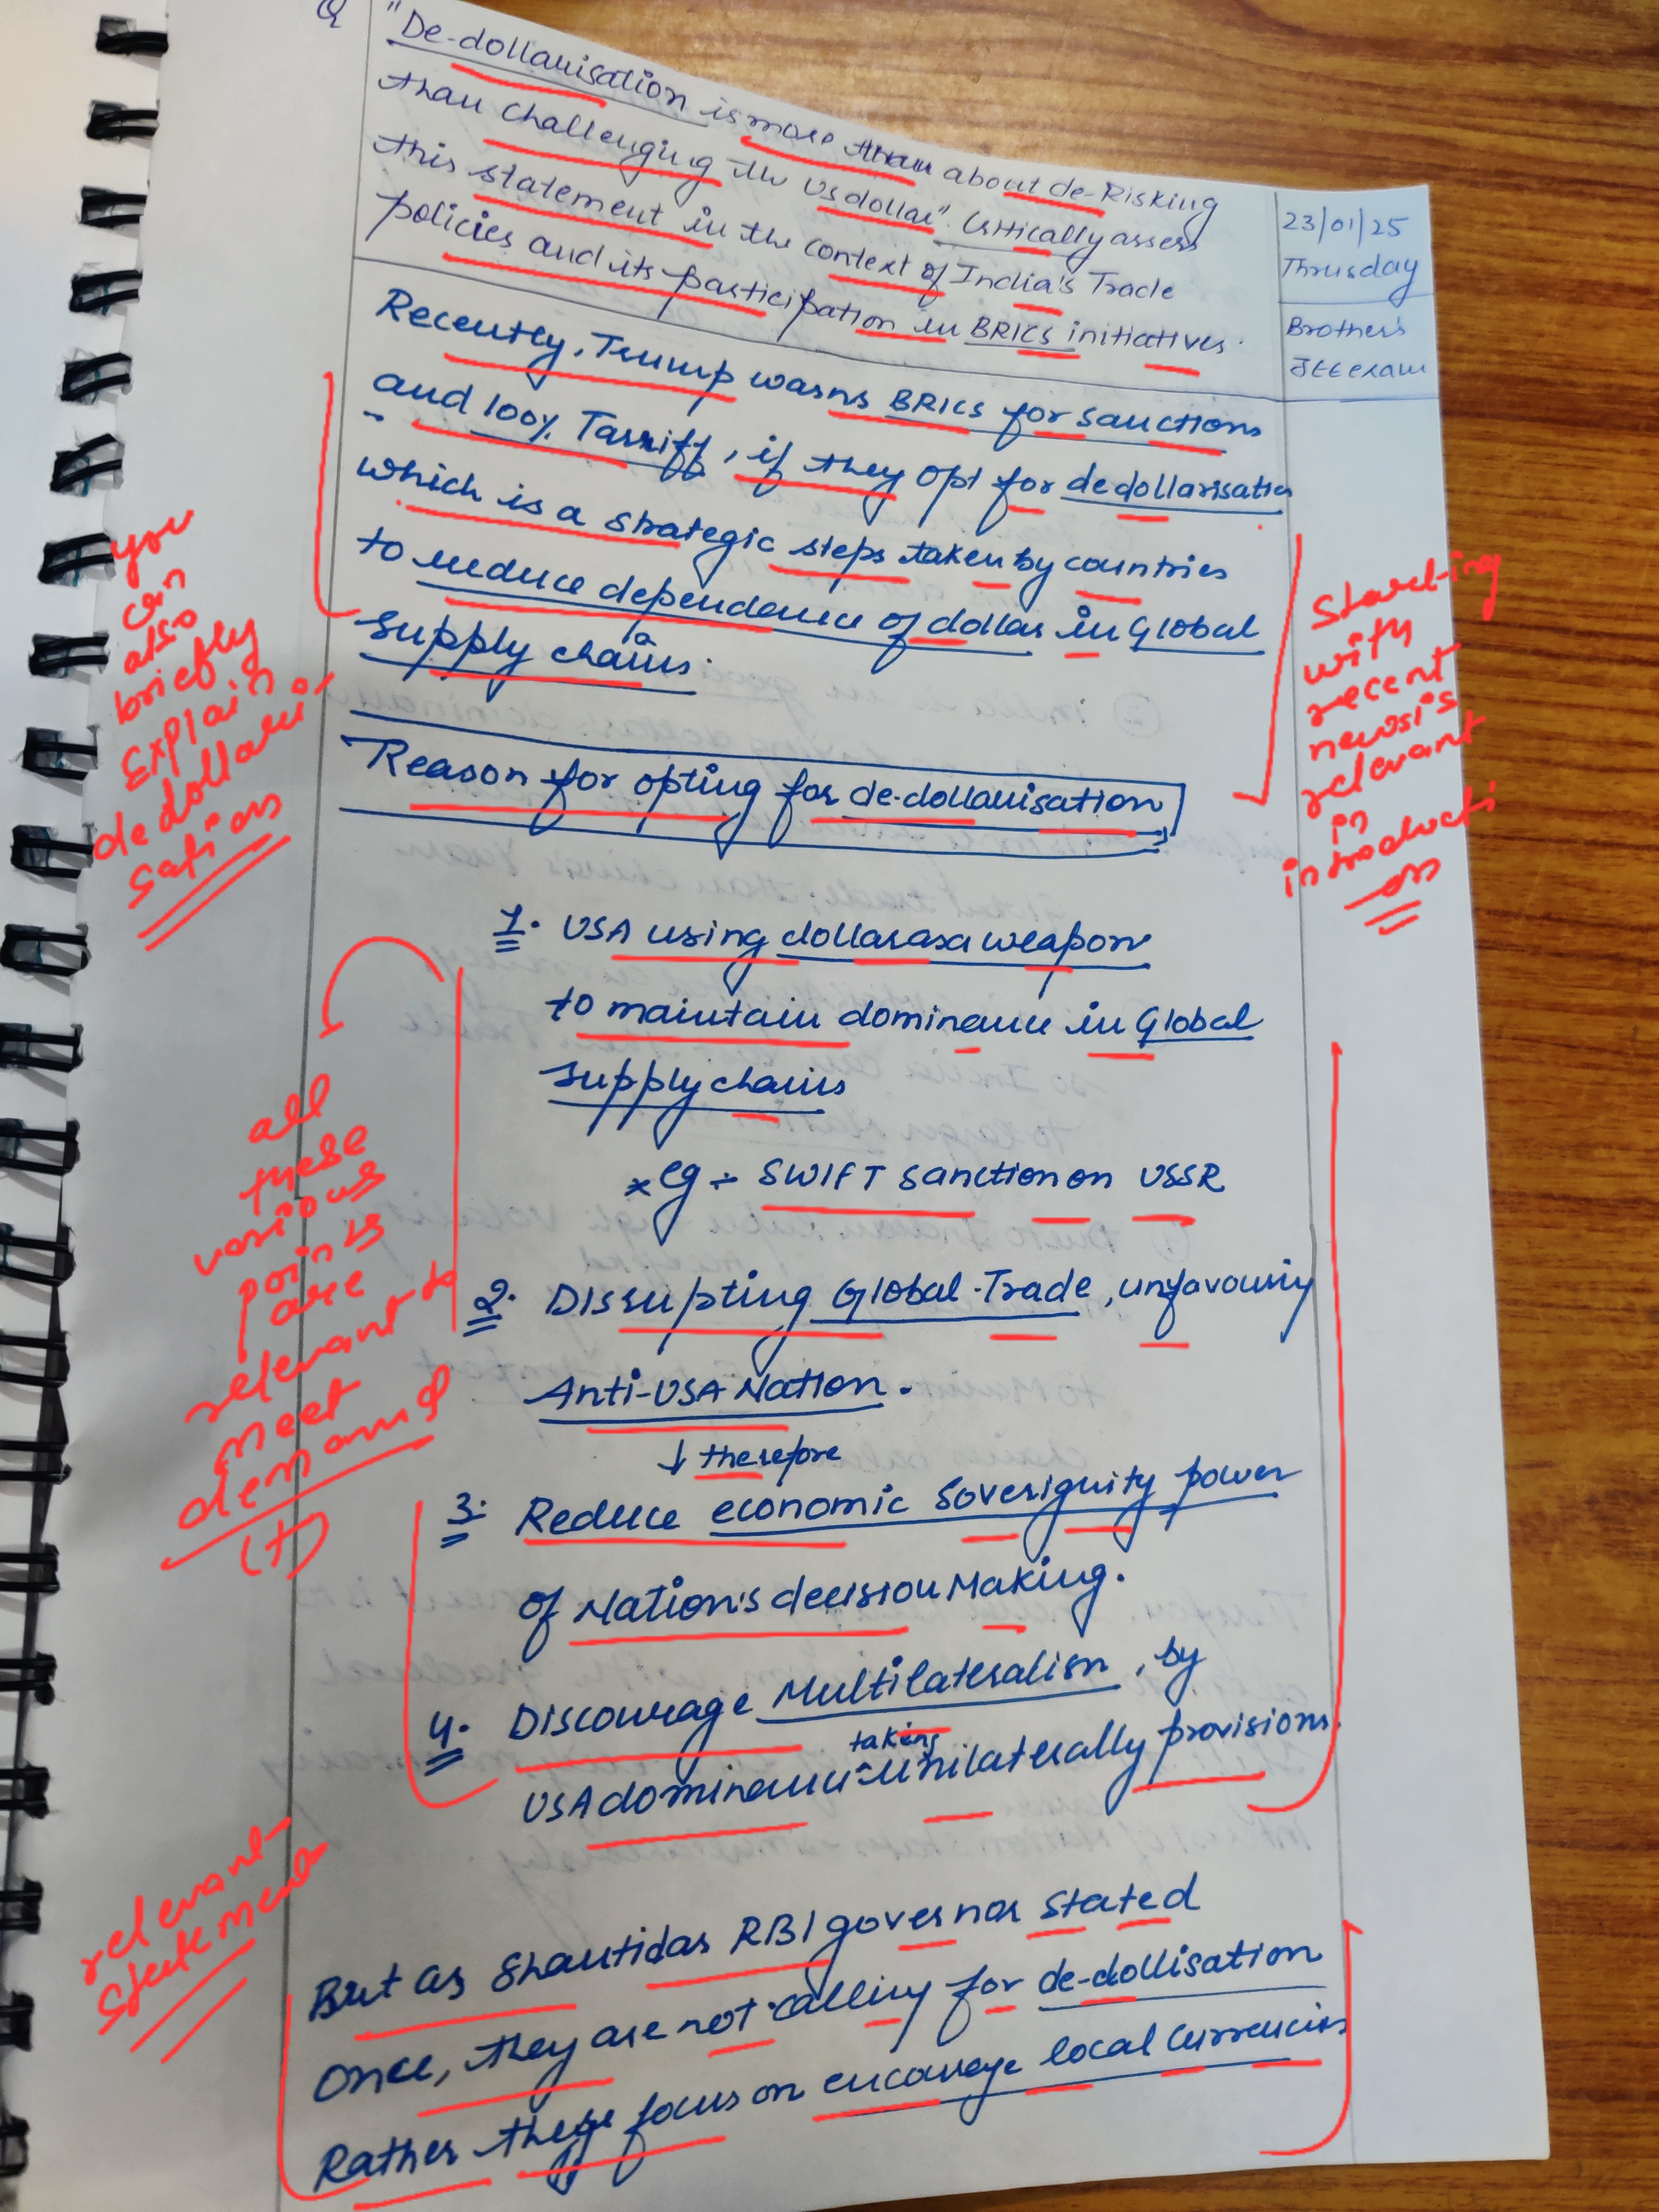 Q "De-dollarisation is more than about de-Risking
than challenging the US dollar". Critically assess
this statement in the context of India's Trade
policies and its participation in BRICS initiatives.
23/01/25
Thrusday
Brother's
JEE exam
Recently, Trump warns BRICS for sanctions
and 100% Tarriff, if they opt for dedollarisation
which is a strategic steps taken by countries
to reduce dependence of dollar in Global
supply chains.
you
can
also
briefly
Explain
dedollari
sations
Starting
with
recent
news is
relevant
in
introducti
on
Reason for opting for de-dollarisation
1. USA using dollar as a weapon
to maintain dominance in Global
supply chains
* eg ÷ SWIFT sanction on USSR
2. Disrupting Global Trade, unfavouriy
Anti-USA Nation.
↓ therefore
3. Reduce economic Soverignity power
of Nation's decision Making.
4. Discourage Multilateralism, by
USA dominance taking unilaterally provisions.
all
these
various
points
are
relevant to
meet
demand
(+)
But as Shantidas RBI governor stated
once, they are not calling for de-dollisation
Rather they focus on encourage local currencies
relevant
statement